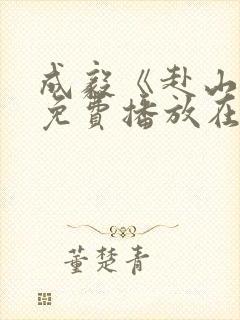 成毅《赴山
免費播放在
董楚青